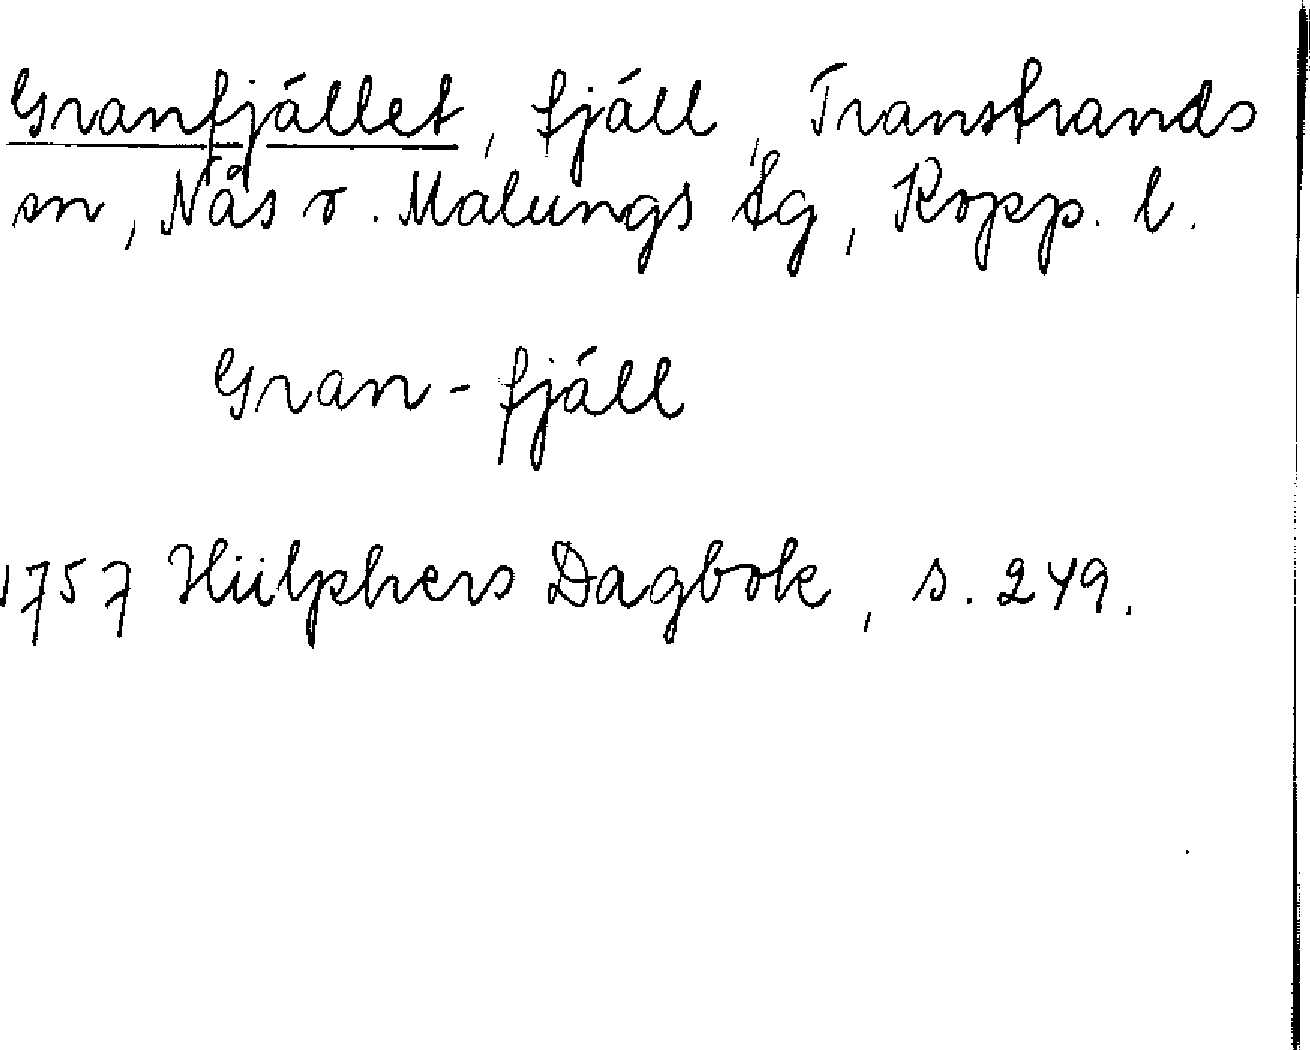 Granfjället, fjäll, Transtrands
sn, Nås o. Malungs fg, Kopp. l.
Gran-fjäll
1757 Hülphers Dagbok, s. 249.